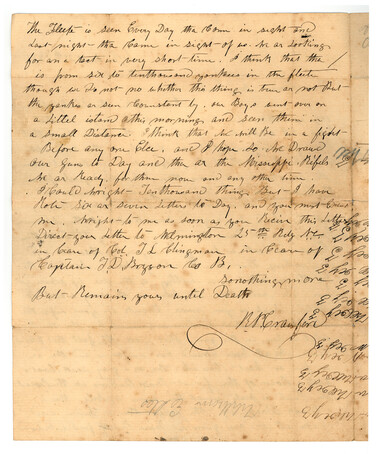 The Fleete is seen Every Day tha Come in sight and
Last night tha Came in sight of us. We ar Looking
for an a Box in very short time. I think that tha
is from six to tenthousand yankees in the fleete
though we Do not no whither tha thing is true or not But
the yankes ar seen Constant ly. our Boys went over on
a littel island this morning and seen them in
a small Distance I think that We will Be in a fight
Before any one Else. and I hope So. We Drawd
our Guns to Day and tha ar the Mississippi Rifels
We ar Ready for them now and any other time.
I Could wright Tenthousand things But I have
Rote Six ar seven Letters to Day, and you must Excus
me. Wright to me as soon as you Reciev this letter
Direct your letter to Wilmington 25th Regt N.C.
in Cear of Col T L Clingman in Cear of
Capitain T D Bryson Co B,
so nothing more
But Remains yours until Death
R P Crawford